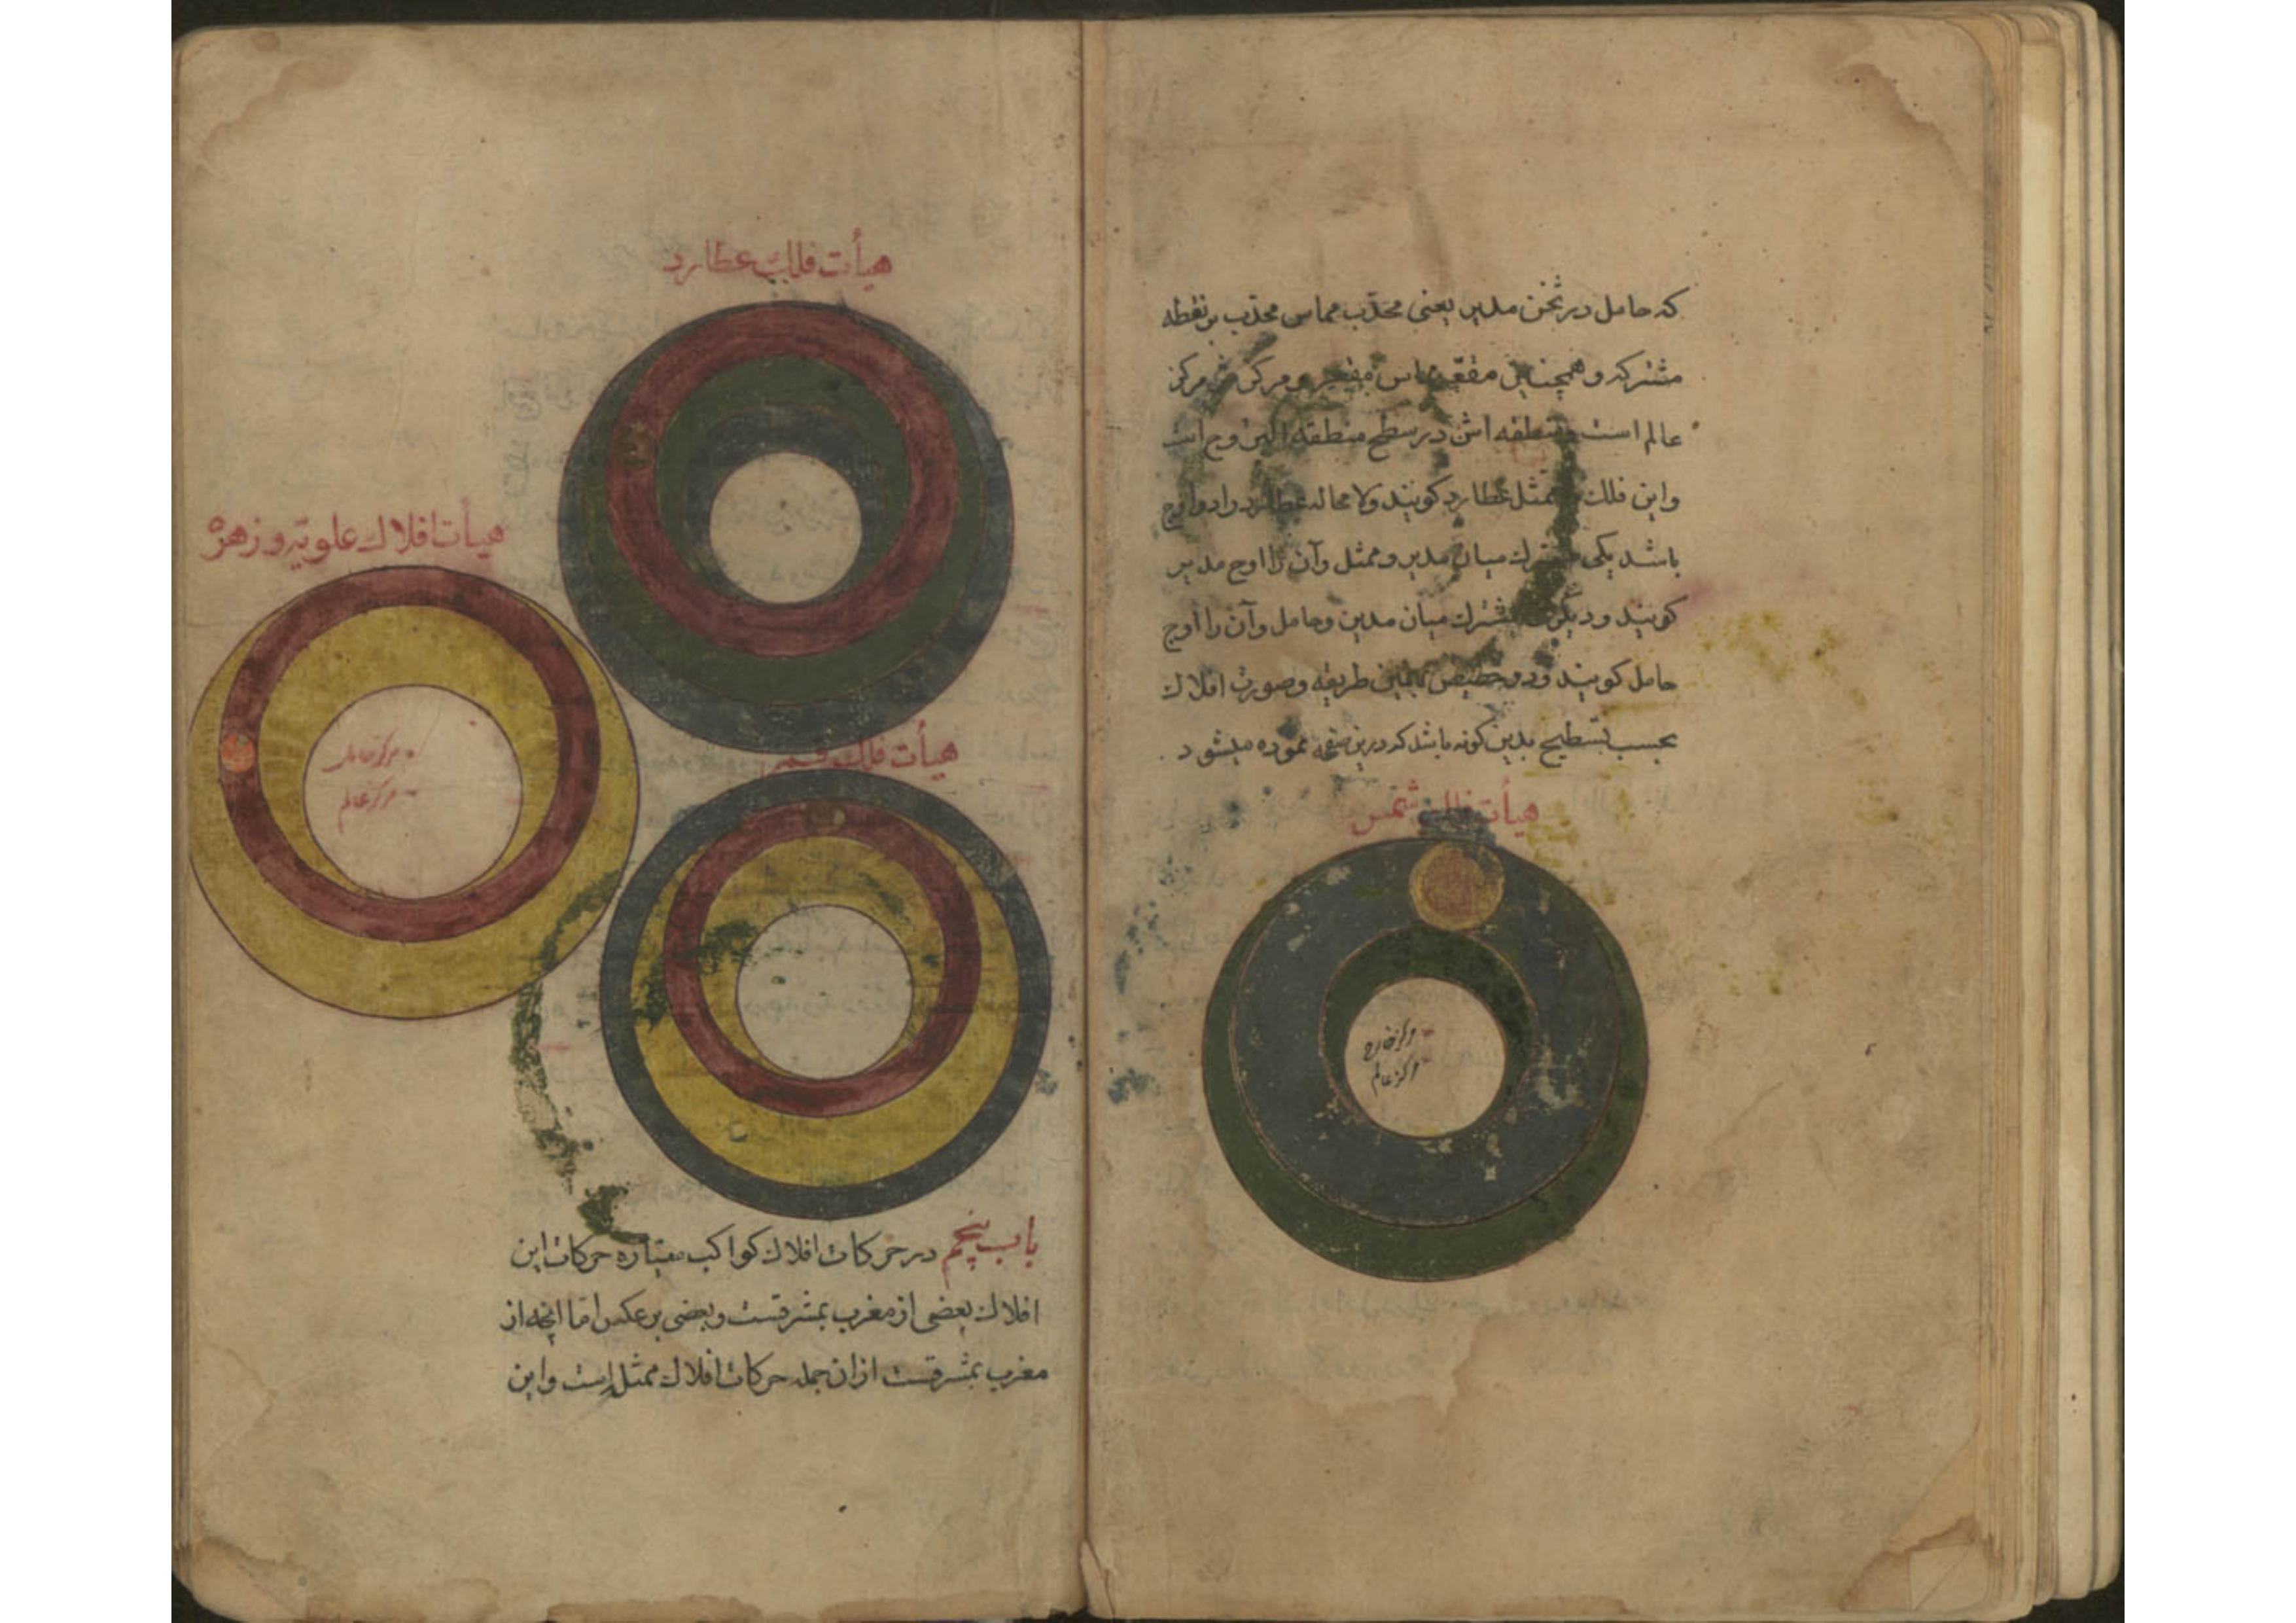 که حامل در ثخن مدیر یعنی محدّب مماس محدّب بر نقطه
مشترکه و همچنین مقعّر مماس مقعر و مرکزش مرکز
عالم است و منطقه اش در سطح منطقه البروج است
و این فلک را ممثل عطارد کویند ولا محاله عطارد را دو اوج
باشد یکی مشترك میان مدیر و ممثل و آن را اوج مدیر
کویند و دیکری مشترك میان مدیر و حامل و آن را اوج
حامل کویند و دو حضیض بهمین طریقه و صورت افلاك
بحسب تسطیح بدین کونه باشد که درین صفحه نموده میشود
هیأت فلك شمس
مرکز خارج
مرکز عالم
هیأت فلك عطارد
هیأت افلاك علویّه و زهره
مرکز حامل
مرکز عالم
هیأت فلك قمر
باب پنجم در حرکات افلاك کواکب سیّاره حرکات این
افلاك بعضی از مغرب بمشرقست و بعضی بر عکس امّا انچه از
مغرب بمشرقست ازان جمله حرکات افلاك ممثل است و این